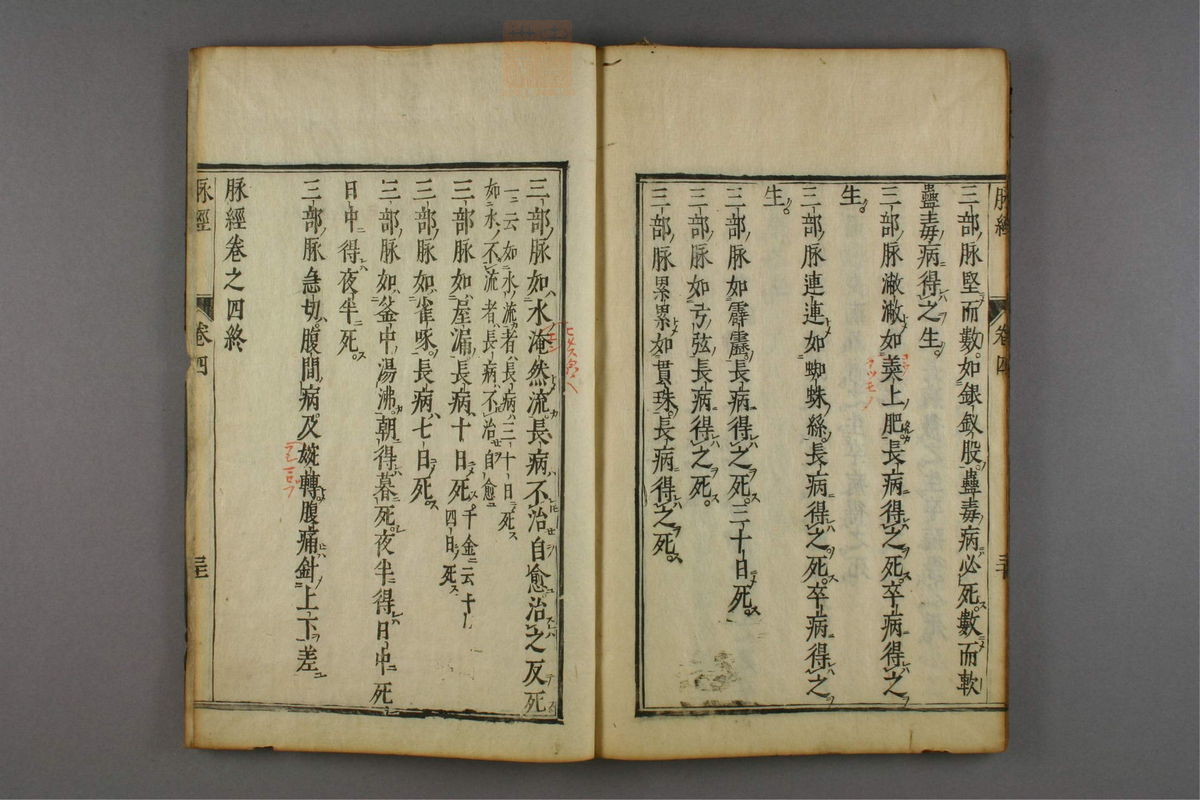 脉經 卷四 三十
三部脉堅而數如銀釵股蠱毒病必死數而軟
蠱毒病得之生
三部脉潎潎如羮上肥長病得之死卒病得之
生
三部脉連連如蜘蛛絲長病得之死卒病得之
生
三部脉如霹靂長病得之死三十日死
三部脉如弓弦長病得之死
三部脉累累如貫珠長病得之死
三部脉如水淹然流長病不治自愈治之反死
一云如水流者長病三十日死
如水不流者長病不治自愈
三部脉如屋漏長病十日死千金云十
四日死
三部脉如雀啄長病七日死
三部脉如釜中湯沸朝得暮死夜半得日中死
日中得夜半死
三部脉急切腹間病又婉轉腹痛針上下差
脉經卷之四終
脉經 卷四